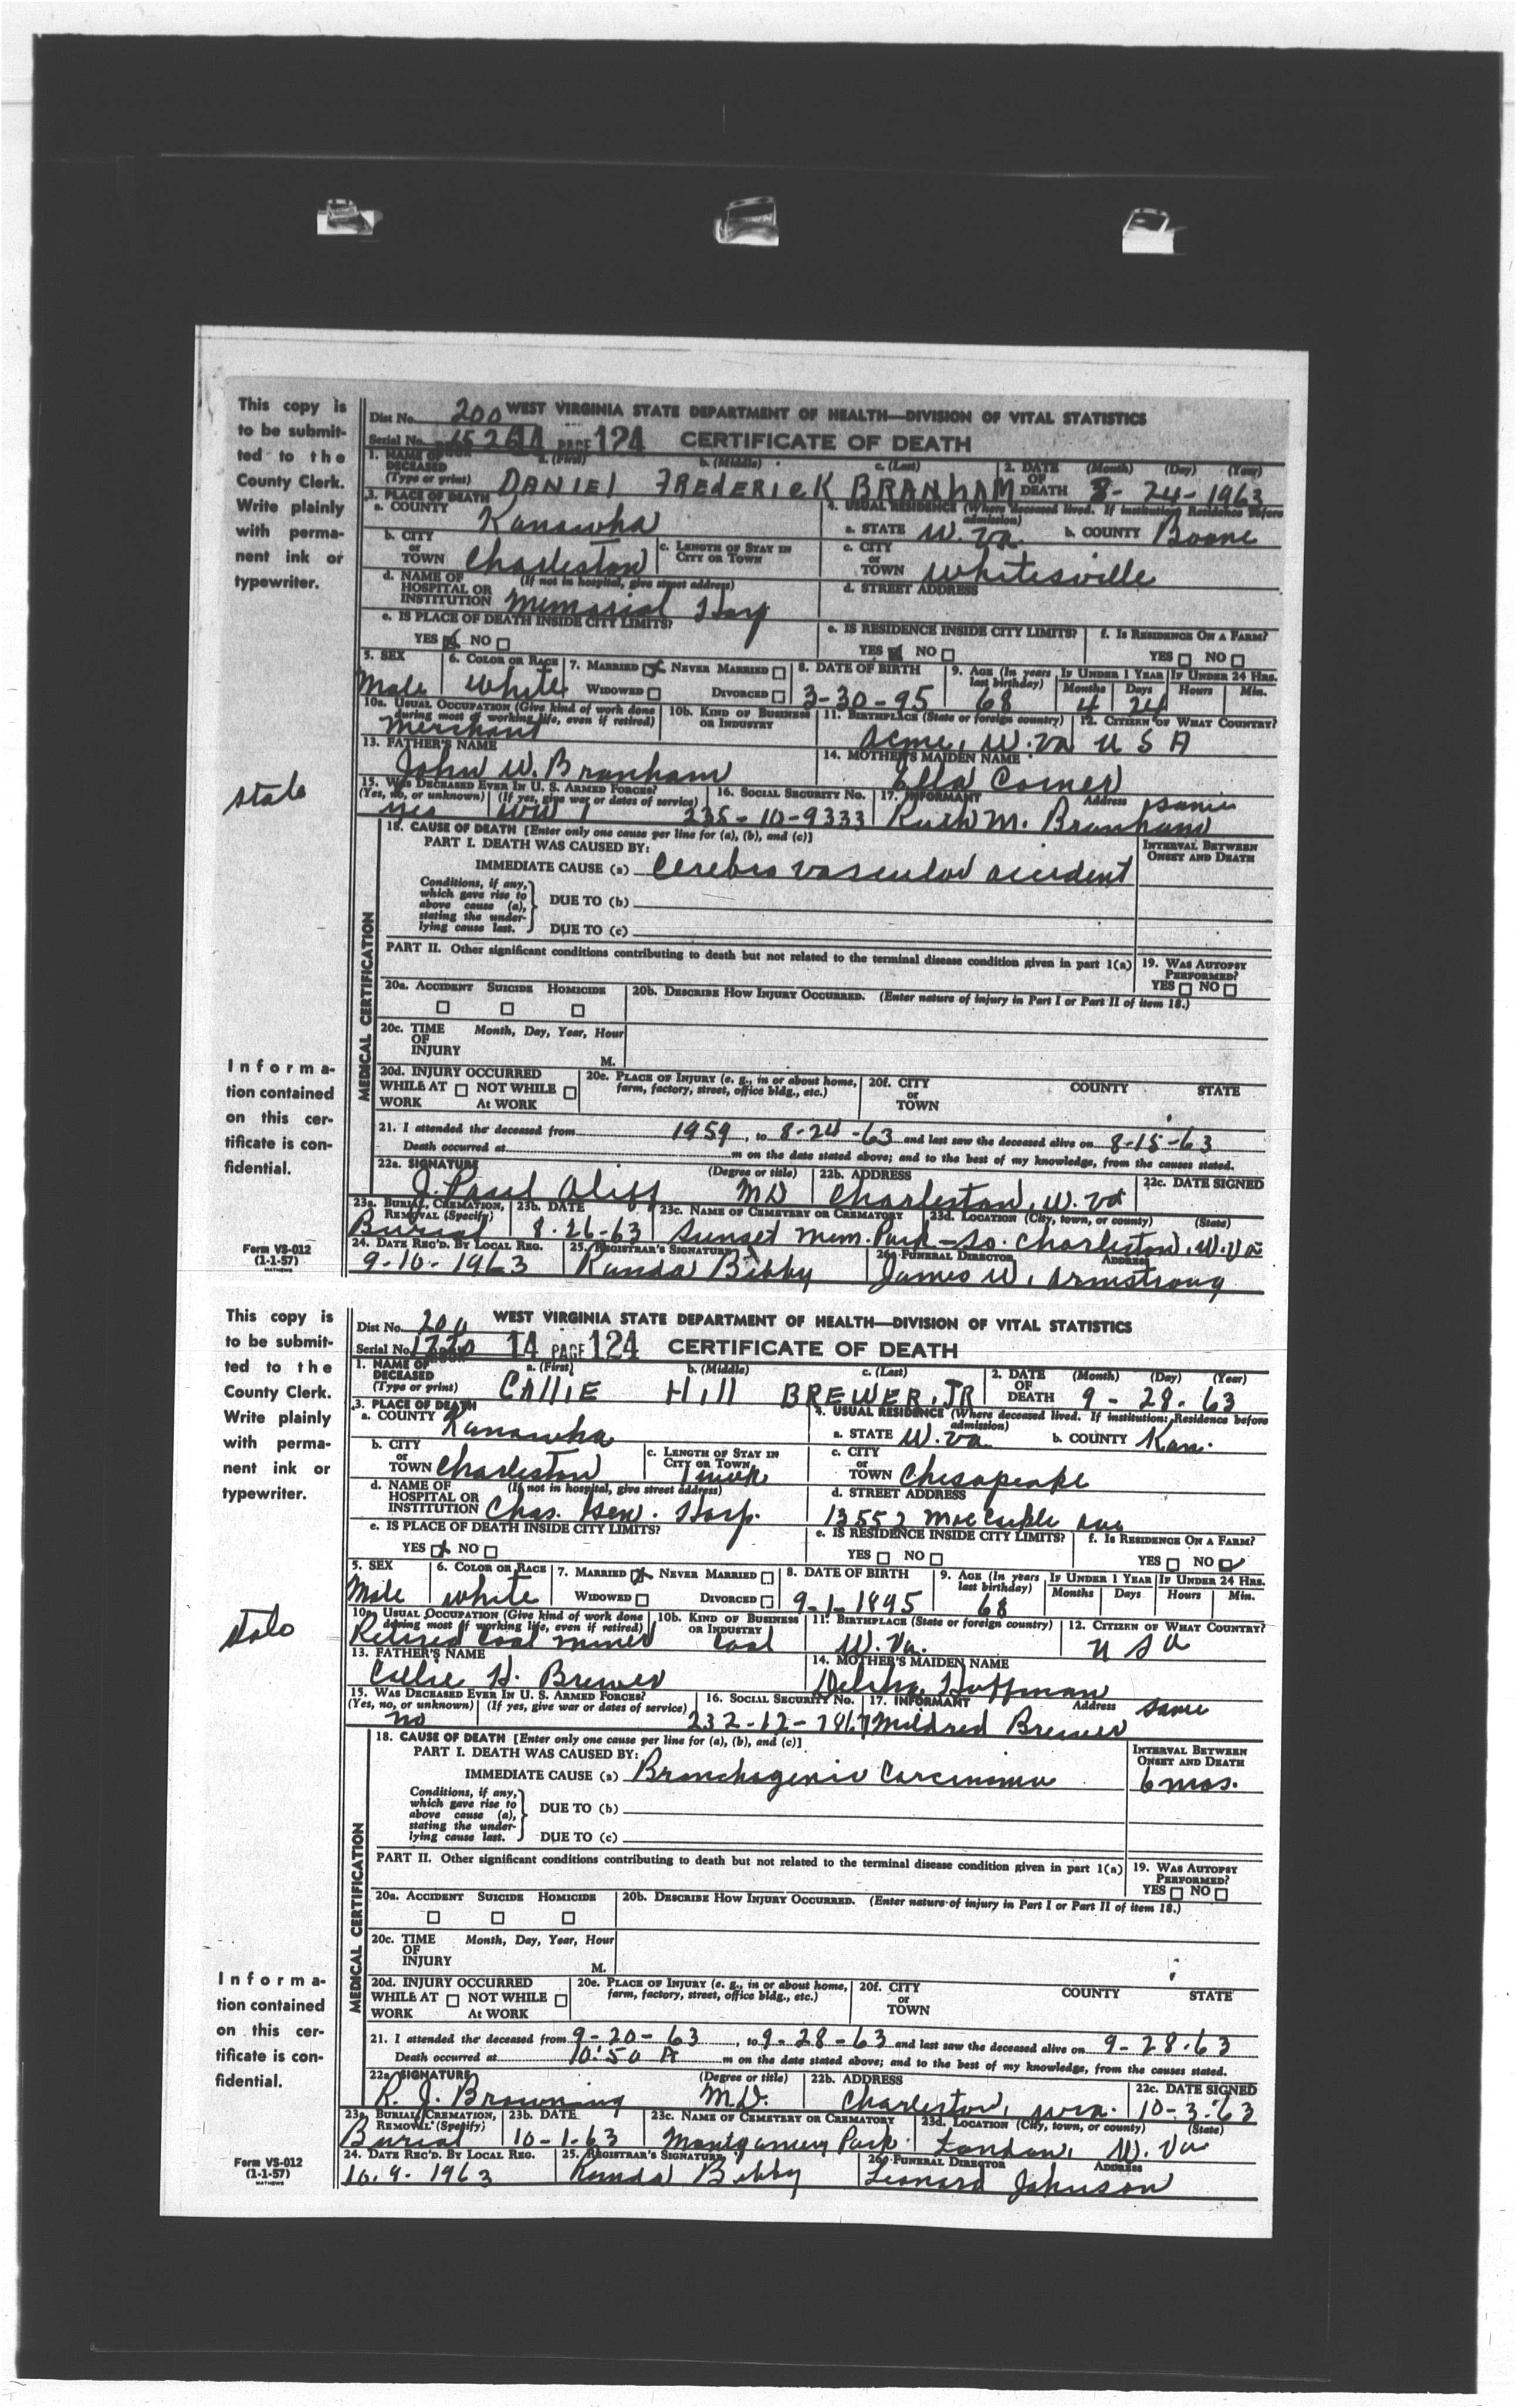 This copy is
to be submit-
ted to the
County Clerk.
Write plainly
with perma-
nent ink or
typewriter.
state
Informa-
tion contained
on this cer-
tificate is con-
fidential.
Form VS-012
(1-1-57)
Dist No. 200 WEST VIRGINIA STATE DEPARTMENT OF HEALTH—DIVISION OF VITAL STATISTICS
Serial No. 1526 14 PAGE 124 CERTIFICATE OF DEATH
1. NAME OF DECEASED (Type or print) a. (First) b. (Middle) c. (Last) 2. DATE OF DEATH (Month) (Day) (Year)
DANIEL FREDERICK BRANHAM 8-24-1963
3. PLACE OF DEATH 4. USUAL RESIDENCE (Where deceased lived. If institution: Residence before admission)
a. COUNTY Kanawha a. STATE W. Va. b. COUNTY Boone
b. CITY or TOWN Charleston c. LENGTH OF STAY IN CITY OR TOWN c. CITY or TOWN Whitesville
d. NAME OF HOSPITAL OR INSTITUTION (If not in hospital, give street address) Memorial Hosp d. STREET ADDRESS
e. IS PLACE OF DEATH INSIDE CITY LIMITS? e. IS RESIDENCE INSIDE CITY LIMITS? f. IS RESIDENCE ON A FARM?
YES NO YES NO YES NO
5. SEX 6. COLOR OR RACE 7. MARRIED NEVER MARRIED 8. DATE OF BIRTH 9. AGE (In years last birthday) IF UNDER 1 YEAR IF UNDER 24 HRS.
Months Days Hours Min.
Male White WIDOWED DIVORCED 3-30-95 68 4 24
10a. USUAL OCCUPATION (Give kind of work done during most of working life, even if retired) 10b. KIND OF BUSINESS OR INDUSTRY 11. BIRTHPLACE (State or foreign country) 12. CITIZEN OF WHAT COUNTRY?
Merchant Acme, W. Va U S A
13. FATHER'S NAME 14. MOTHER'S MAIDEN NAME
John W. Branham Ella Comer
15. WAS DECEASED EVER IN U. S. ARMED FORCES? 16. SOCIAL SECURITY No. 17. INFORMANT Address
(Yes, no, or unknown) (If yes, give war or dates of service)
yes WW 1 235-10-9333 Ruth M. Branham same
MEDICAL CERTIFICATION
18. CAUSE OF DEATH [Enter only one cause per line for (a), (b), and (c)]
PART I. DEATH WAS CAUSED BY: INTERVAL BETWEEN ONSET AND DEATH
IMMEDIATE CAUSE (a) Cerebro vascular accident
Conditions, if any, which gave rise to above cause (a), stating the under-lying cause last.
DUE TO (b)
DUE TO (c)
PART II. Other significant conditions contributing to death but not related to the terminal disease condition given in part 1(a) 19. WAS AUTOPSY PERFORMED?
YES NO
20a. ACCIDENT SUICIDE HOMICIDE 20b. DESCRIBE HOW INJURY OCCURRED. (Enter nature of injury in Part I or Part II of item 18.)
20c. TIME OF INJURY Month, Day, Year, Hour
M.
20d. INJURY OCCURRED 20e. PLACE OF INJURY (e. g., in or about home, farm, factory, street, office bldg., etc.) 20f. CITY or TOWN COUNTY STATE
WHILE AT WORK NOT WHILE AT WORK
21. I attended the deceased from 1959, to 8-24-63 and last saw the deceased alive on 8-15-63
Death occurred at m on the date stated above; and to the best of my knowledge, from the causes stated.
22a. SIGNATURE (Degree or title) 22b. ADDRESS 22c. DATE SIGNED
J. Paul Aliff MD Charleston, W. Va
23a. BURIAL, CREMATION, REMOVAL (Specify) 23b. DATE 23c. NAME OF CEMETERY OR CREMATORY 23d. LOCATION (City, town, or county) (State)
Burial 8-26-63 Sunset Mem. Park - So. Charleston, W. Va
24. DATE REC'D. BY LOCAL REG. 25. REGISTRAR'S SIGNATURE 26. FUNERAL DIRECTOR ADDRESS
9-10-1963 Bibby James W. Armstrong
This copy is
to be submit-
ted to the
County Clerk.
Write plainly
with perma-
nent ink or
typewriter.
state
Informa-
tion contained
on this cer-
tificate is con-
fidential.
Form VS-012
(1-1-57)
Dist No. 200 WEST VIRGINIA STATE DEPARTMENT OF HEALTH—DIVISION OF VITAL STATISTICS
Serial No. 14 PAGE 124 CERTIFICATE OF DEATH
1. NAME OF DECEASED (Type or print) a. (First) b. (Middle) c. (Last) 2. DATE OF DEATH (Month) (Day) (Year)
CALLIE HILL BREWER, JR 9-28-63
3. PLACE OF DEATH 4. USUAL RESIDENCE (Where deceased lived. If institution: Residence before admission)
a. COUNTY Kanawha a. STATE W. Va. b. COUNTY Kan.
b. CITY or TOWN Charleston c. LENGTH OF STAY IN CITY OR TOWN 1 wek c. CITY or TOWN Chesapeake
d. NAME OF HOSPITAL OR INSTITUTION (If not in hospital, give street address) Chas. Gen. Hosp. d. STREET ADDRESS 13552 MacCorkle Ave
e. IS PLACE OF DEATH INSIDE CITY LIMITS? e. IS RESIDENCE INSIDE CITY LIMITS? f. IS RESIDENCE ON A FARM?
YES NO YES NO YES NO
5. SEX 6. COLOR OR RACE 7. MARRIED NEVER MARRIED 8. DATE OF BIRTH 9. AGE (In years last birthday) IF UNDER 1 YEAR IF UNDER 24 HRS.
Months Days Hours Min.
Male White WIDOWED DIVORCED 9-1-1895 68
10a. USUAL OCCUPATION (Give kind of work done during most of working life, even if retired) 10b. KIND OF BUSINESS OR INDUSTRY 11. BIRTHPLACE (State or foreign country) 12. CITIZEN OF WHAT COUNTRY?
Retired Coal miner Coal W. Va. U S A
13. FATHER'S NAME 14. MOTHER'S MAIDEN NAME
Callie H. Brewer Hoffman
15. WAS DECEASED EVER IN U. S. ARMED FORCES? 16. SOCIAL SECURITY No. 17. INFORMANT Address
(Yes, no, or unknown) (If yes, give war or dates of service)
no Mildred Brewer same
MEDICAL CERTIFICATION
18. CAUSE OF DEATH [Enter only one cause per line for (a), (b), and (c)]
PART I. DEATH WAS CAUSED BY: INTERVAL BETWEEN ONSET AND DEATH
IMMEDIATE CAUSE (a) Bronchogenic Carcinoma 6 mos.
Conditions, if any, which gave rise to above cause (a), stating the under-lying cause last.
DUE TO (b)
DUE TO (c)
PART II. Other significant conditions contributing to death but not related to the terminal disease condition given in part 1(a) 19. WAS AUTOPSY PERFORMED?
YES NO
20a. ACCIDENT SUICIDE HOMICIDE 20b. DESCRIBE HOW INJURY OCCURRED. (Enter nature of injury in Part I or Part II of item 18.)
20c. TIME OF INJURY Month, Day, Year, Hour
M.
20d. INJURY OCCURRED 20e. PLACE OF INJURY (e. g., in or about home, farm, factory, street, office bldg., etc.) 20f. CITY or TOWN COUNTY STATE
WHILE AT WORK NOT WHILE AT WORK
21. I attended the deceased from 9-20-63, to 9-28-63 and last saw the deceased alive on 9-28-63
Death occurred at 10:50 A m on the date stated above; and to the best of my knowledge, from the causes stated.
22a. SIGNATURE (Degree or title) 22b. ADDRESS 22c. DATE SIGNED
R. J. Browning M.D. Charleston, W.Va. 10-3-63
23a. BURIAL, CREMATION, REMOVAL (Specify) 23b. DATE 23c. NAME OF CEMETERY OR CREMATORY 23d. LOCATION (City, town, or county) (State)
Burial 10-1-63 Montgomery Park London, W. Va
24. DATE REC'D. BY LOCAL REG. 25. REGISTRAR'S SIGNATURE 26. FUNERAL DIRECTOR ADDRESS
10-9-1963 Bibby Leonard Johnson